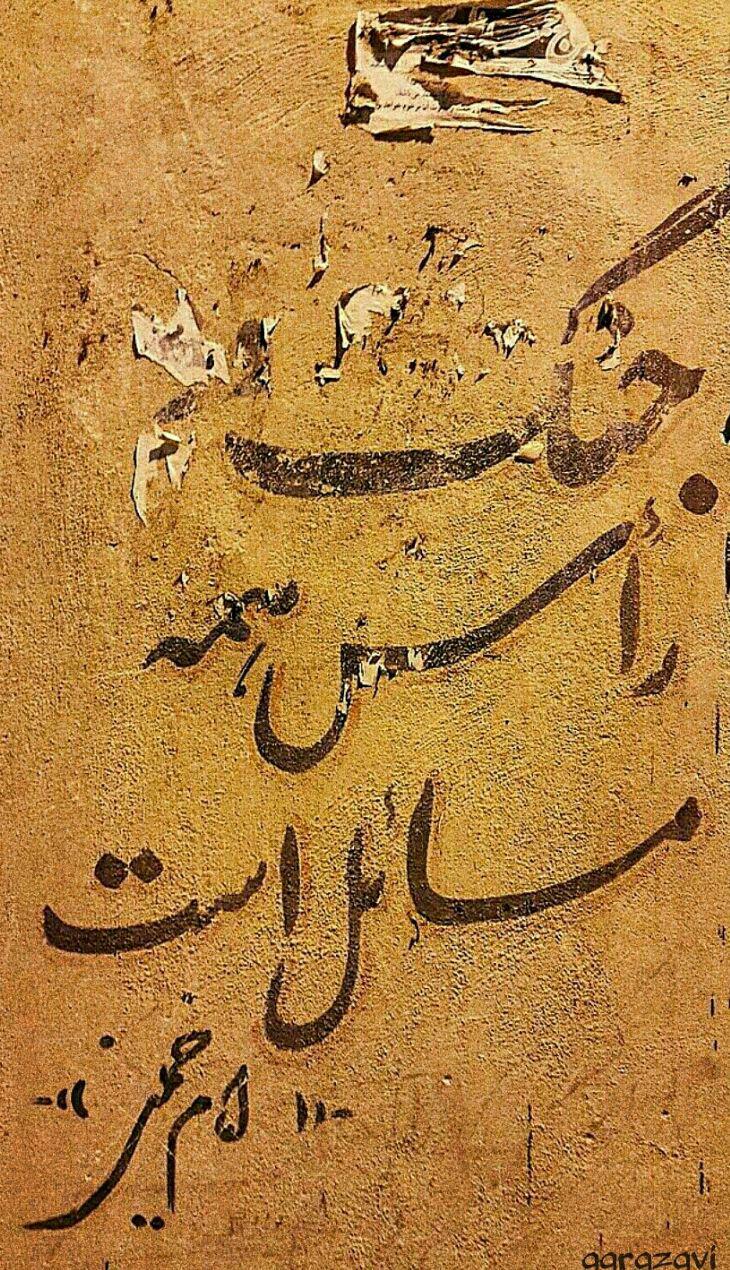 جنگ
رأس همه
مسائل است
-«امام خمینی»-
aarazavi